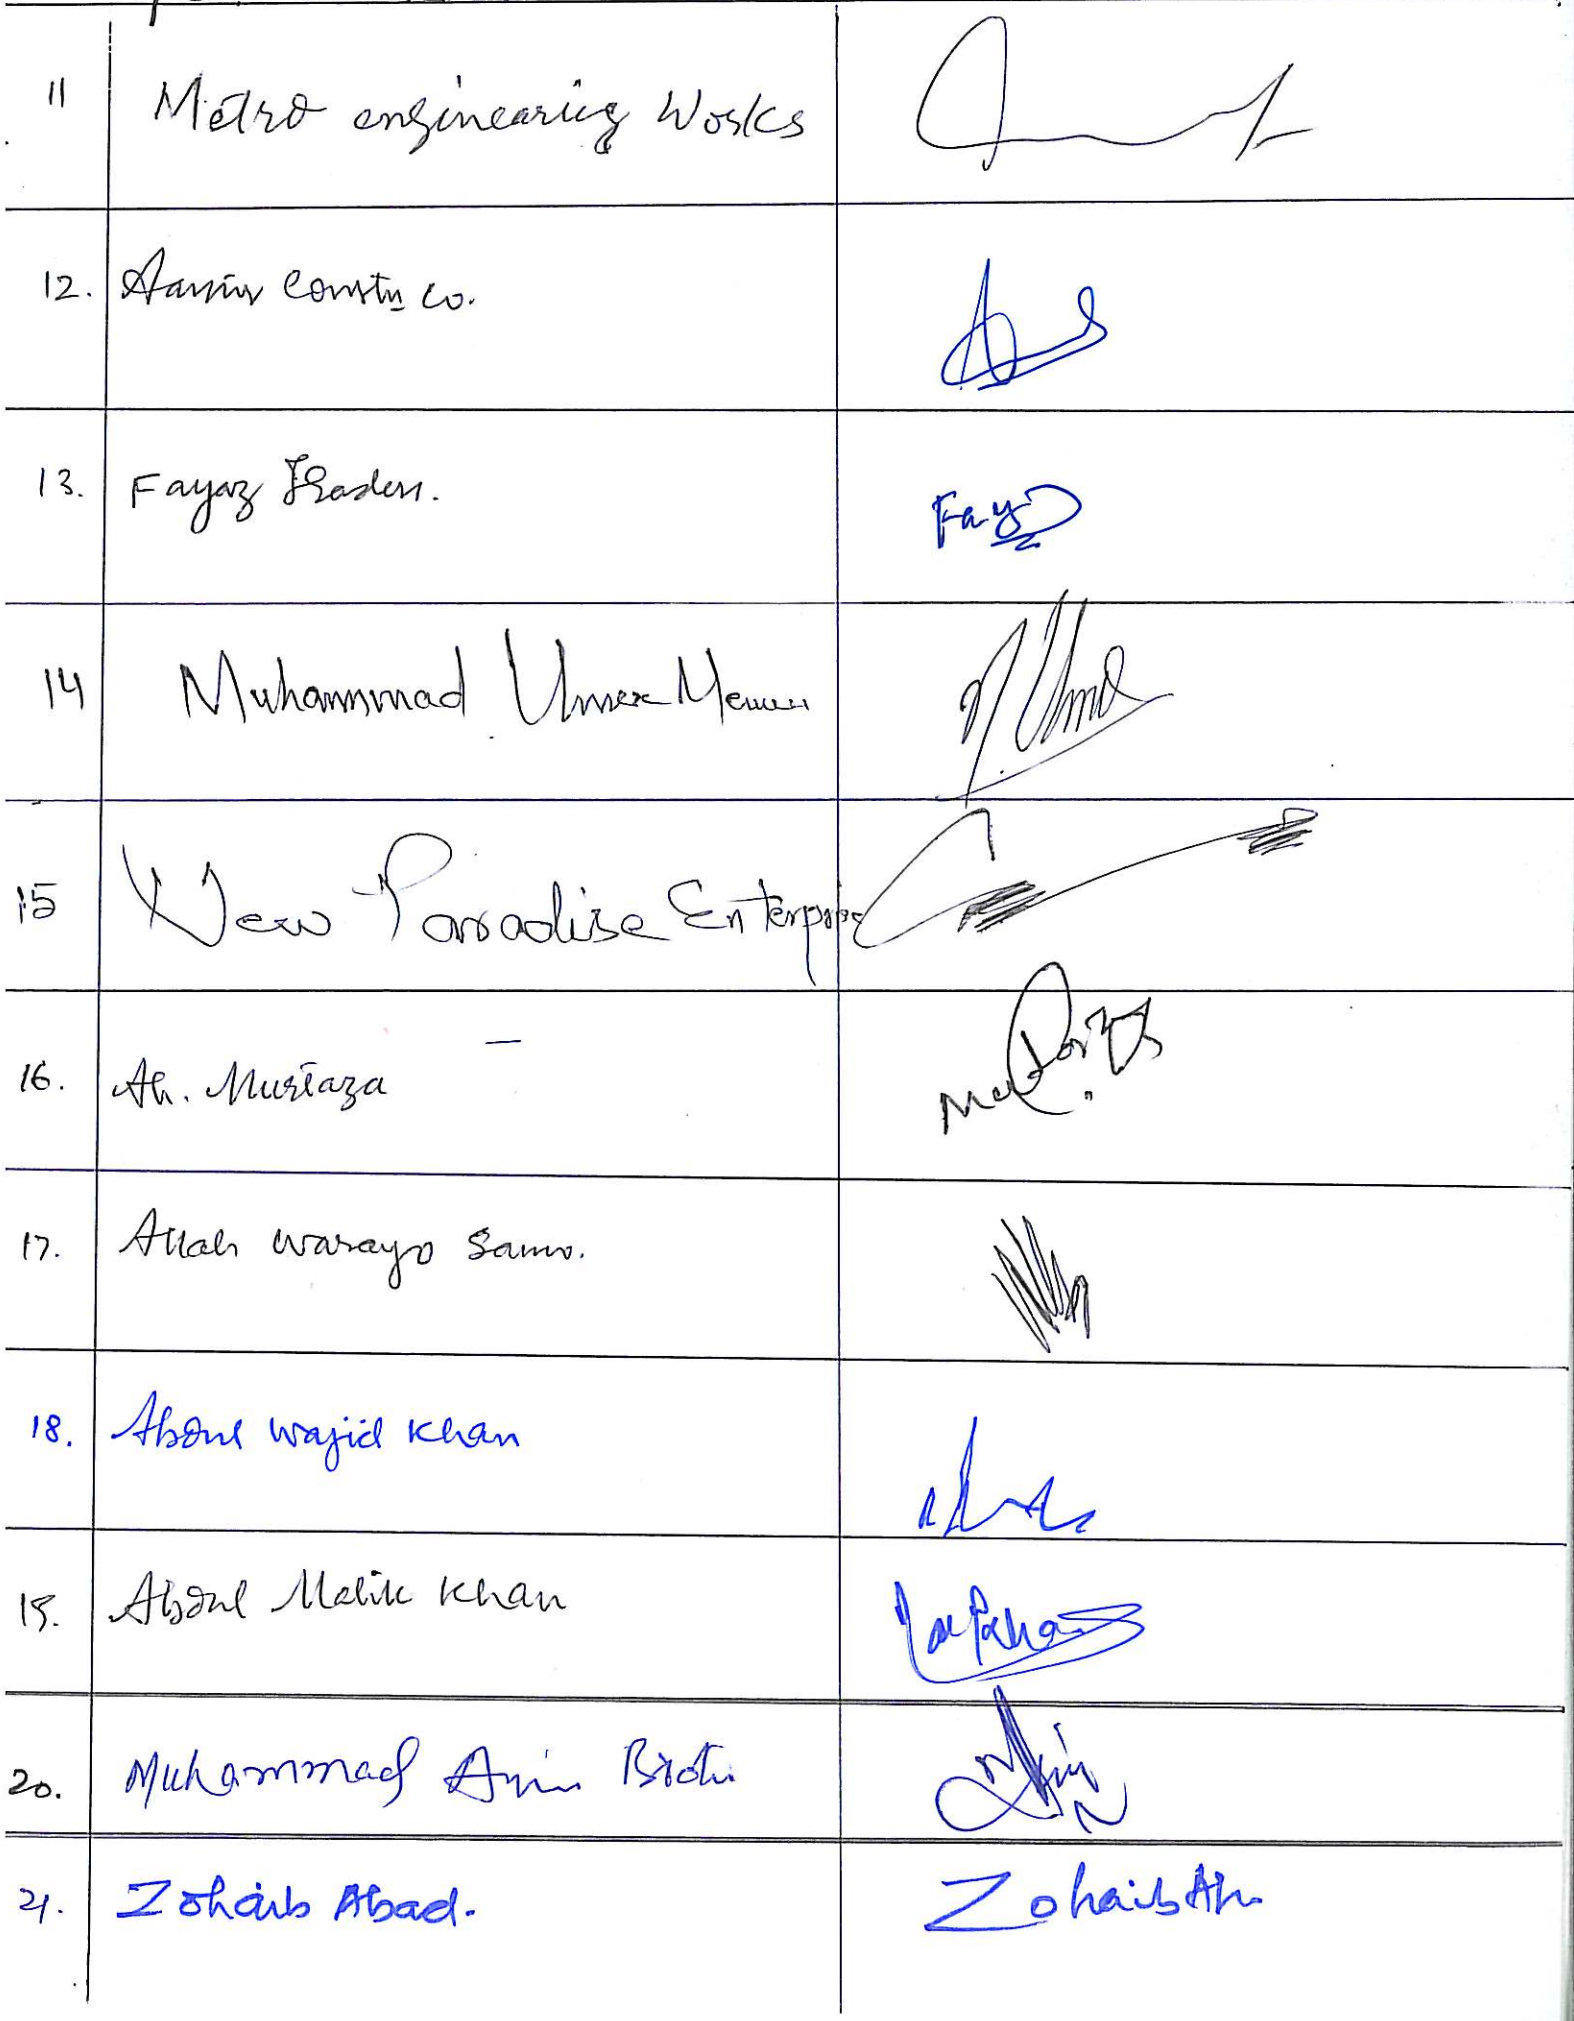 11 Metro engineering Works
12. Aamir Constn co.
13. Fayaz Traders. Fayz
14 Muhammad Umer Memon M. Umer
15 New Paradise Enterprise
16. Ah. Murtaza
17. Allah warayo Samo.
18. Abdul Wajid Khan
19. Abdul Malik Khan
20. Muhammad Amin
21. Zohaib Abad. Zohaib